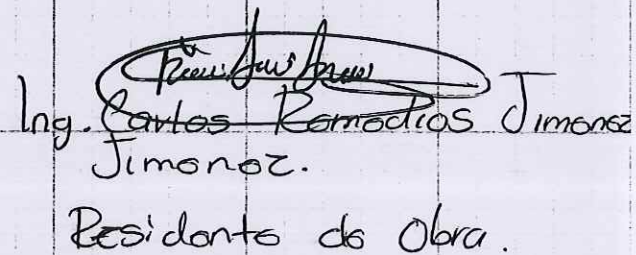 Ing. Carlos Remedios Jimenez
Jimenez.
Residente de Obra.